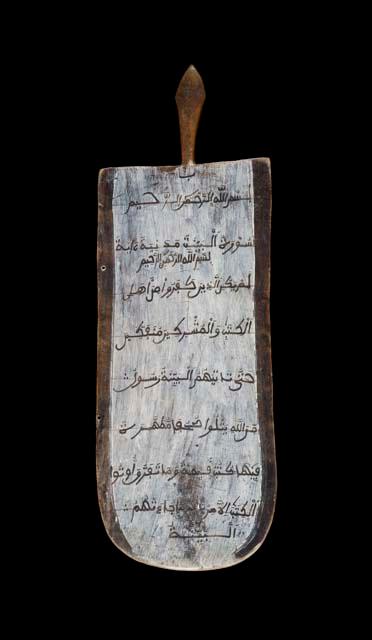 ب
بسم الله الرحمن الرحيم
سورة البينة مدنية ءاية
بسم الله الرحمن الرحيم
لم يكن الذين كفروا من اهل
الكتب والمشركين منفكين
حتى تاتيهم البينة رسول
من الله يتلوا صحفا مطهرة
فيها كتب قيمة وما تفرق اوتوا
الكتب الا من بعد ما جاءتهم
البينة